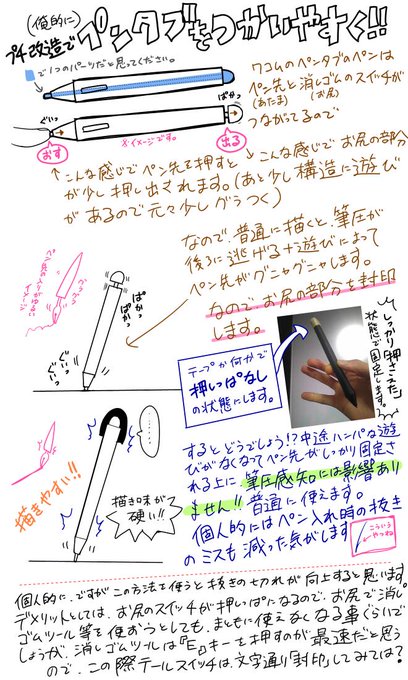 (俺的に)
プチ改造でペンタブをつかいやすく!!
■で1つのパーツだと思ってください。
ワコムのペンタブのペンは
ペン先と消しゴムのスイッチが
(あたま) (お尻)
つながってるので
ぐいっ
ぱかっ
おす
※イメージです。
出る
↑こんな感じでペン先を押すと
↓こんな感じでお尻の部分
が少し押し出されます。(あと少し構造に遊び
があるので元々少しグラつく)
なので、普通に描くと、筆圧が
後ろに逃げる+遊びによって
ペン先がグニャグニャします。
なのでお尻の部分を封印
します。
グラグラ
ぱかっ
ぱかっ
ぐいっ
ぐいっ
しっかり押さえた
状態で固定します。
テープか何かで
押しっぱなし
の状態にします。
するとどうでしょう!?中途ハンパな遊
びがなくなってペン先がしっかり固定さ
れる上に、筆圧感知には影響あり
ません!!普通に使えます。
個人的にはペン入れ時の抜き
のミスも減った気がします
こういう
やつね
描きやすい!!
描き味がて
硬い!!
個人的に、ですがこの方法を使うと抜きの切れが向上すると思います。
デメリットとしては、お尻のスイッチが押しっぱになるので、お尻で消し
ゴムツール等を使おうとしても、まともに使えなくなる事ぐらいで
しょうが、消しゴムツールは『E』キーを押すのが最速だと思う
ので、この際テールスイッチは、文字通り封印してみては?